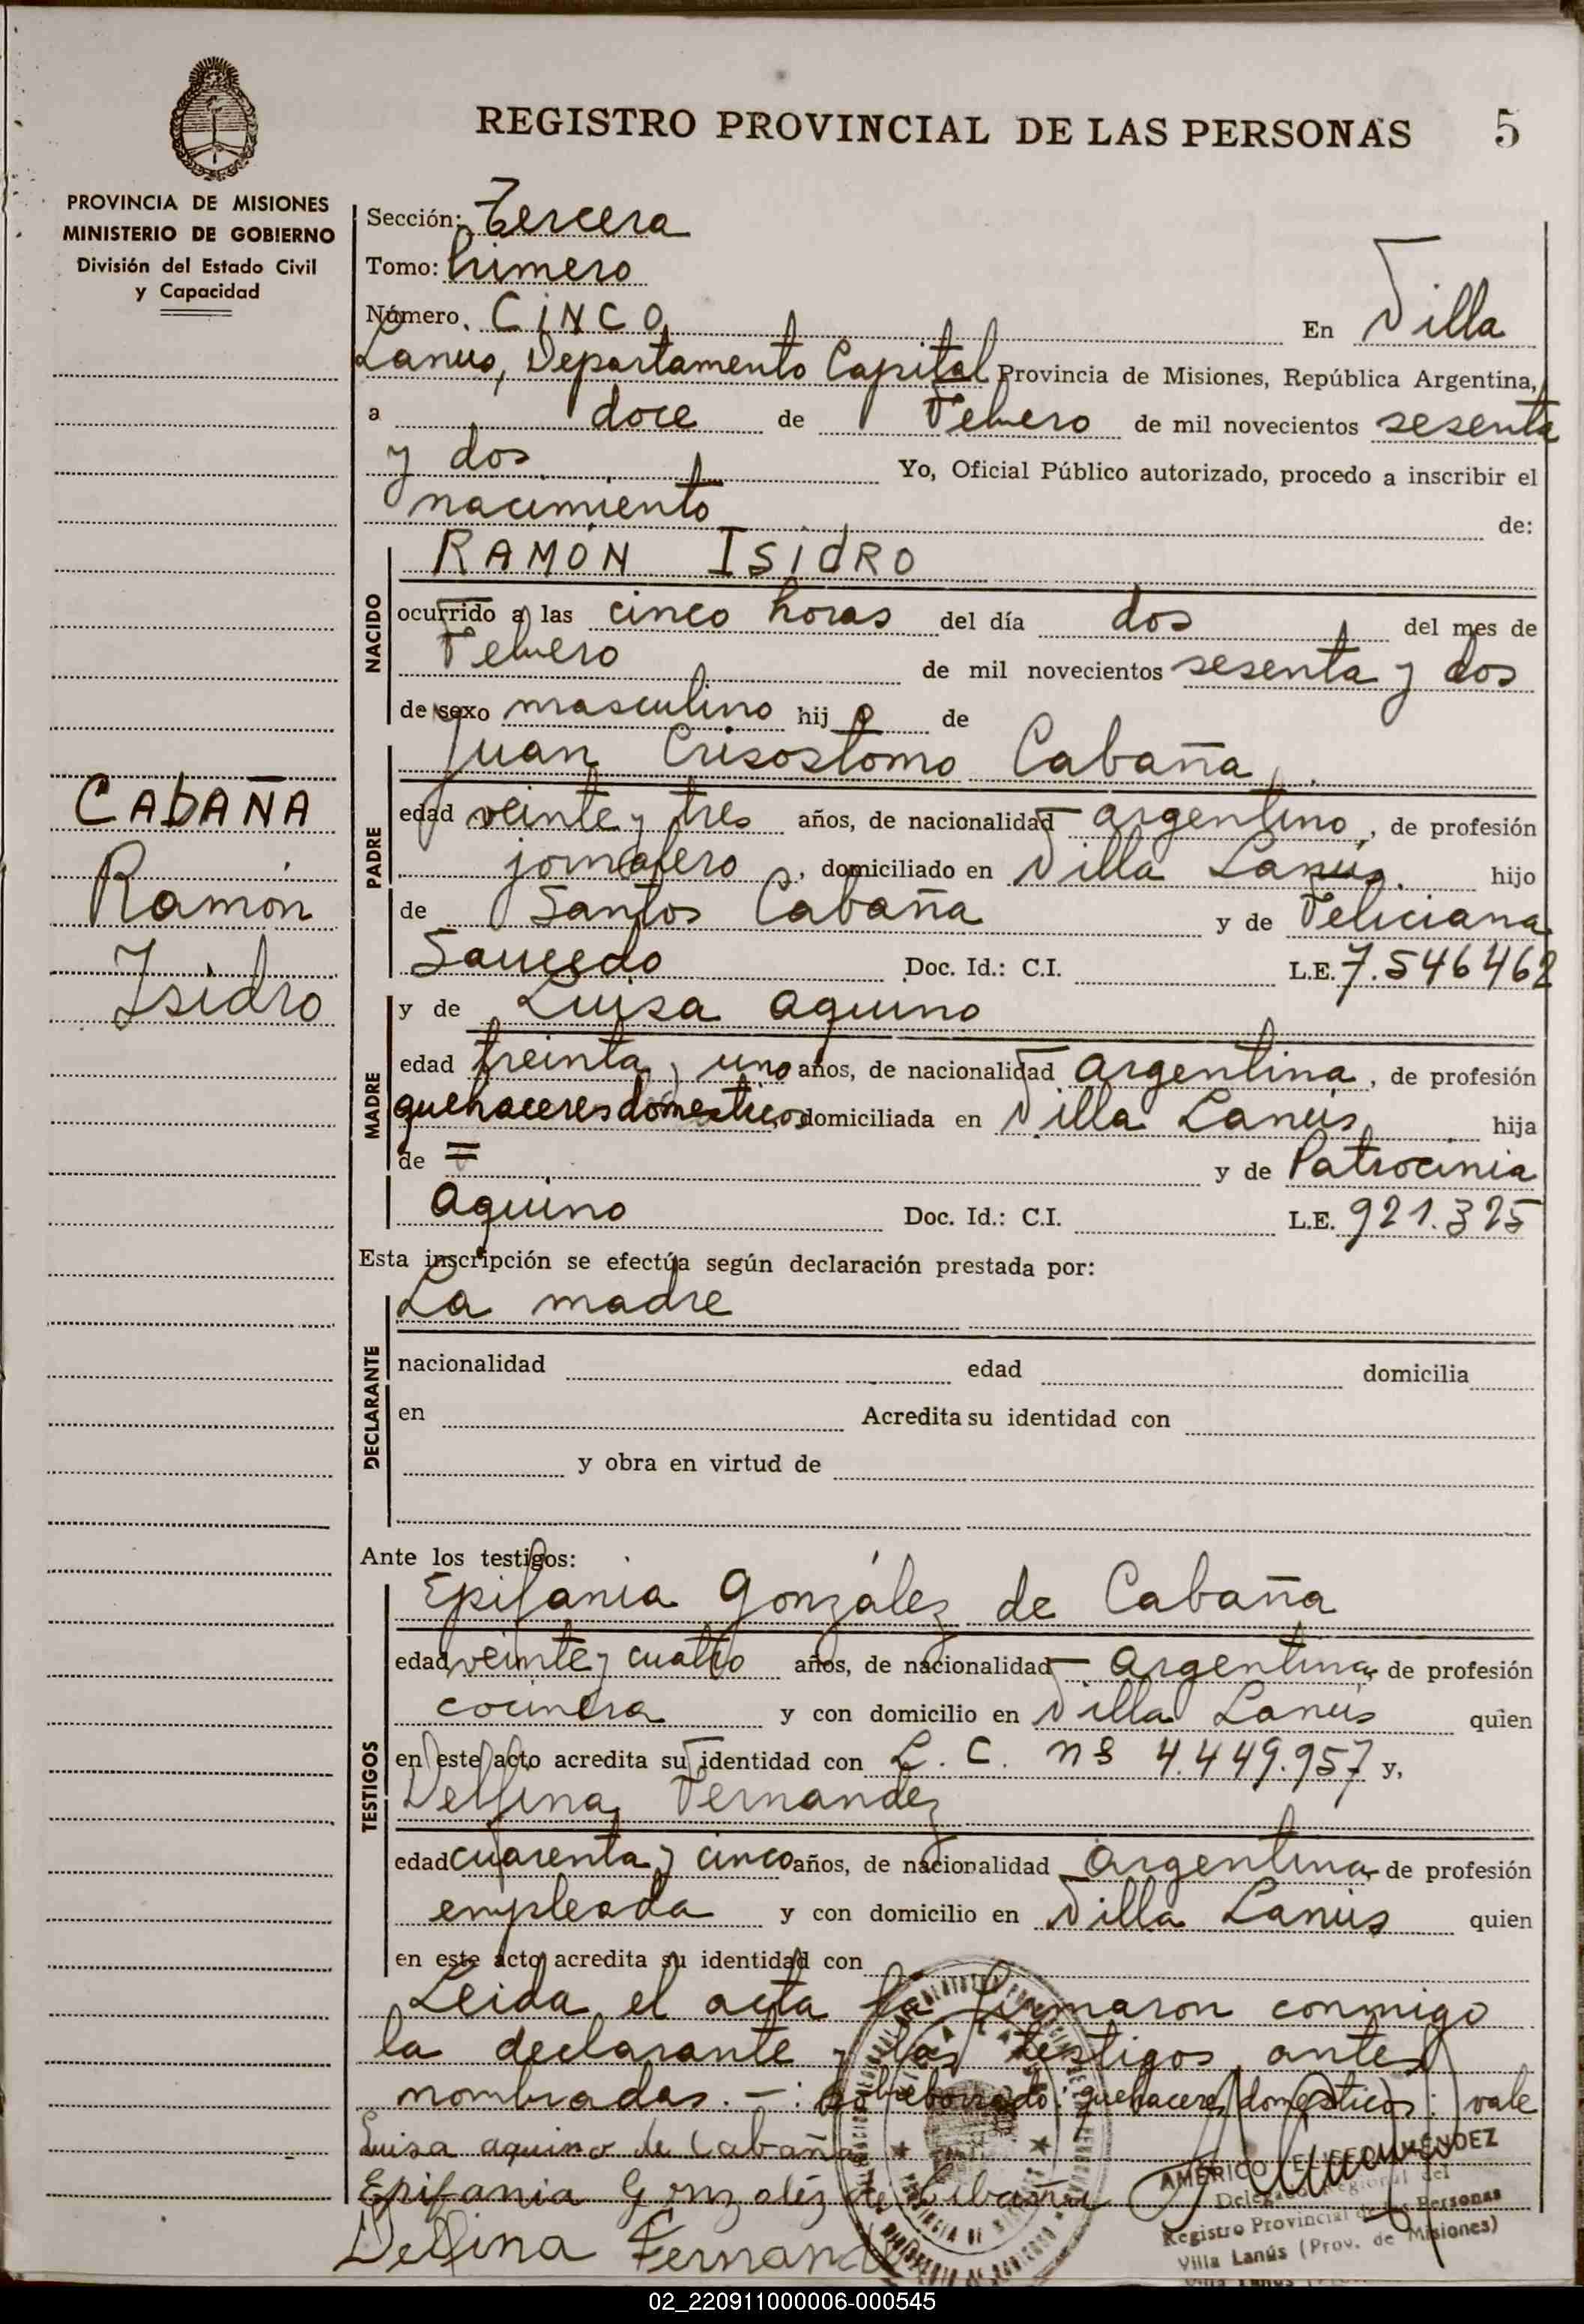 REGISTRO PROVINCIAL DE LAS PERSONAS 5
PROVINCIA DE MISIONES
MINISTERIO DE GOBIERNO
División del Estado Civil
y Capacidad
CABAÑA
Ramón
Isidro
Sección: Tercera
Tomo: Primero
Número. CINCO En Villa
Lanus, Departamento Capital Provincia de Misiones, República Argentina,
a doce de Febrero de mil novecientos sesenta
y dos Yo, Oficial Público autorizado, procedo a inscribir el
nacimiento de:
NACIDO
RAMÓN ISIdRO
ocurrido a las cinco horas del día dos del mes de
Febrero de mil novecientos sesenta y dos
de sexo masculino hij o de
PADRE
Juan Crisostomo Cabaña,
edad veinte y tres años, de nacionalidad argentino, de profesión
jornalero, domiciliado en Villa Lanús. hijo
de Santos Cabaña y de Feliciana
Saucedo Doc. Id.: C.I. L.E. 7.546462
MADRE
y de Luisa Aquino
edad treinta y uno años, de nacionalidad argentina, de profesión
quehaceres domesticos domiciliada en Villa Lanús hija
de = y de Patrocinia
Aquino Doc. Id.: C.I. L.E. 921.325
Esta inscripción se efectúa según declaración prestada por:
DECLARANTE
La madre
nacionalidad edad domicilia
en Acredita su identidad con
y obra en virtud de
Ante los testigos:
TESTIGOS
Epifania González de Cabaña
edad veinte y cuatro años, de nacionalidad argentina de profesión
cocinera y con domicilio en Villa Lanús quien
en este acto acredita su identidad con L. C. nº 4.449.957 y,
Delfina Fernandez
edad cuarenta y cinco años, de nacionalidad argentina de profesión
empleada y con domicilio en Villa Lanús quien
en este acto acredita su identidad con
Leida el acta la firmaron conmigo
la declarante y los testigos antes
nombradas. -: Sobreborrado: quehaceres domesticos: vale
Luisa aquino de Cabaña
Epifania Gonzaléz de Cabaña
Delfina Fernand
AMÉRICO MÉNDEZ
Delegado Regional del
Registro Provincial de las Personas
Villa Lanús (Prov. de Misiones)
02_220911000006-000545